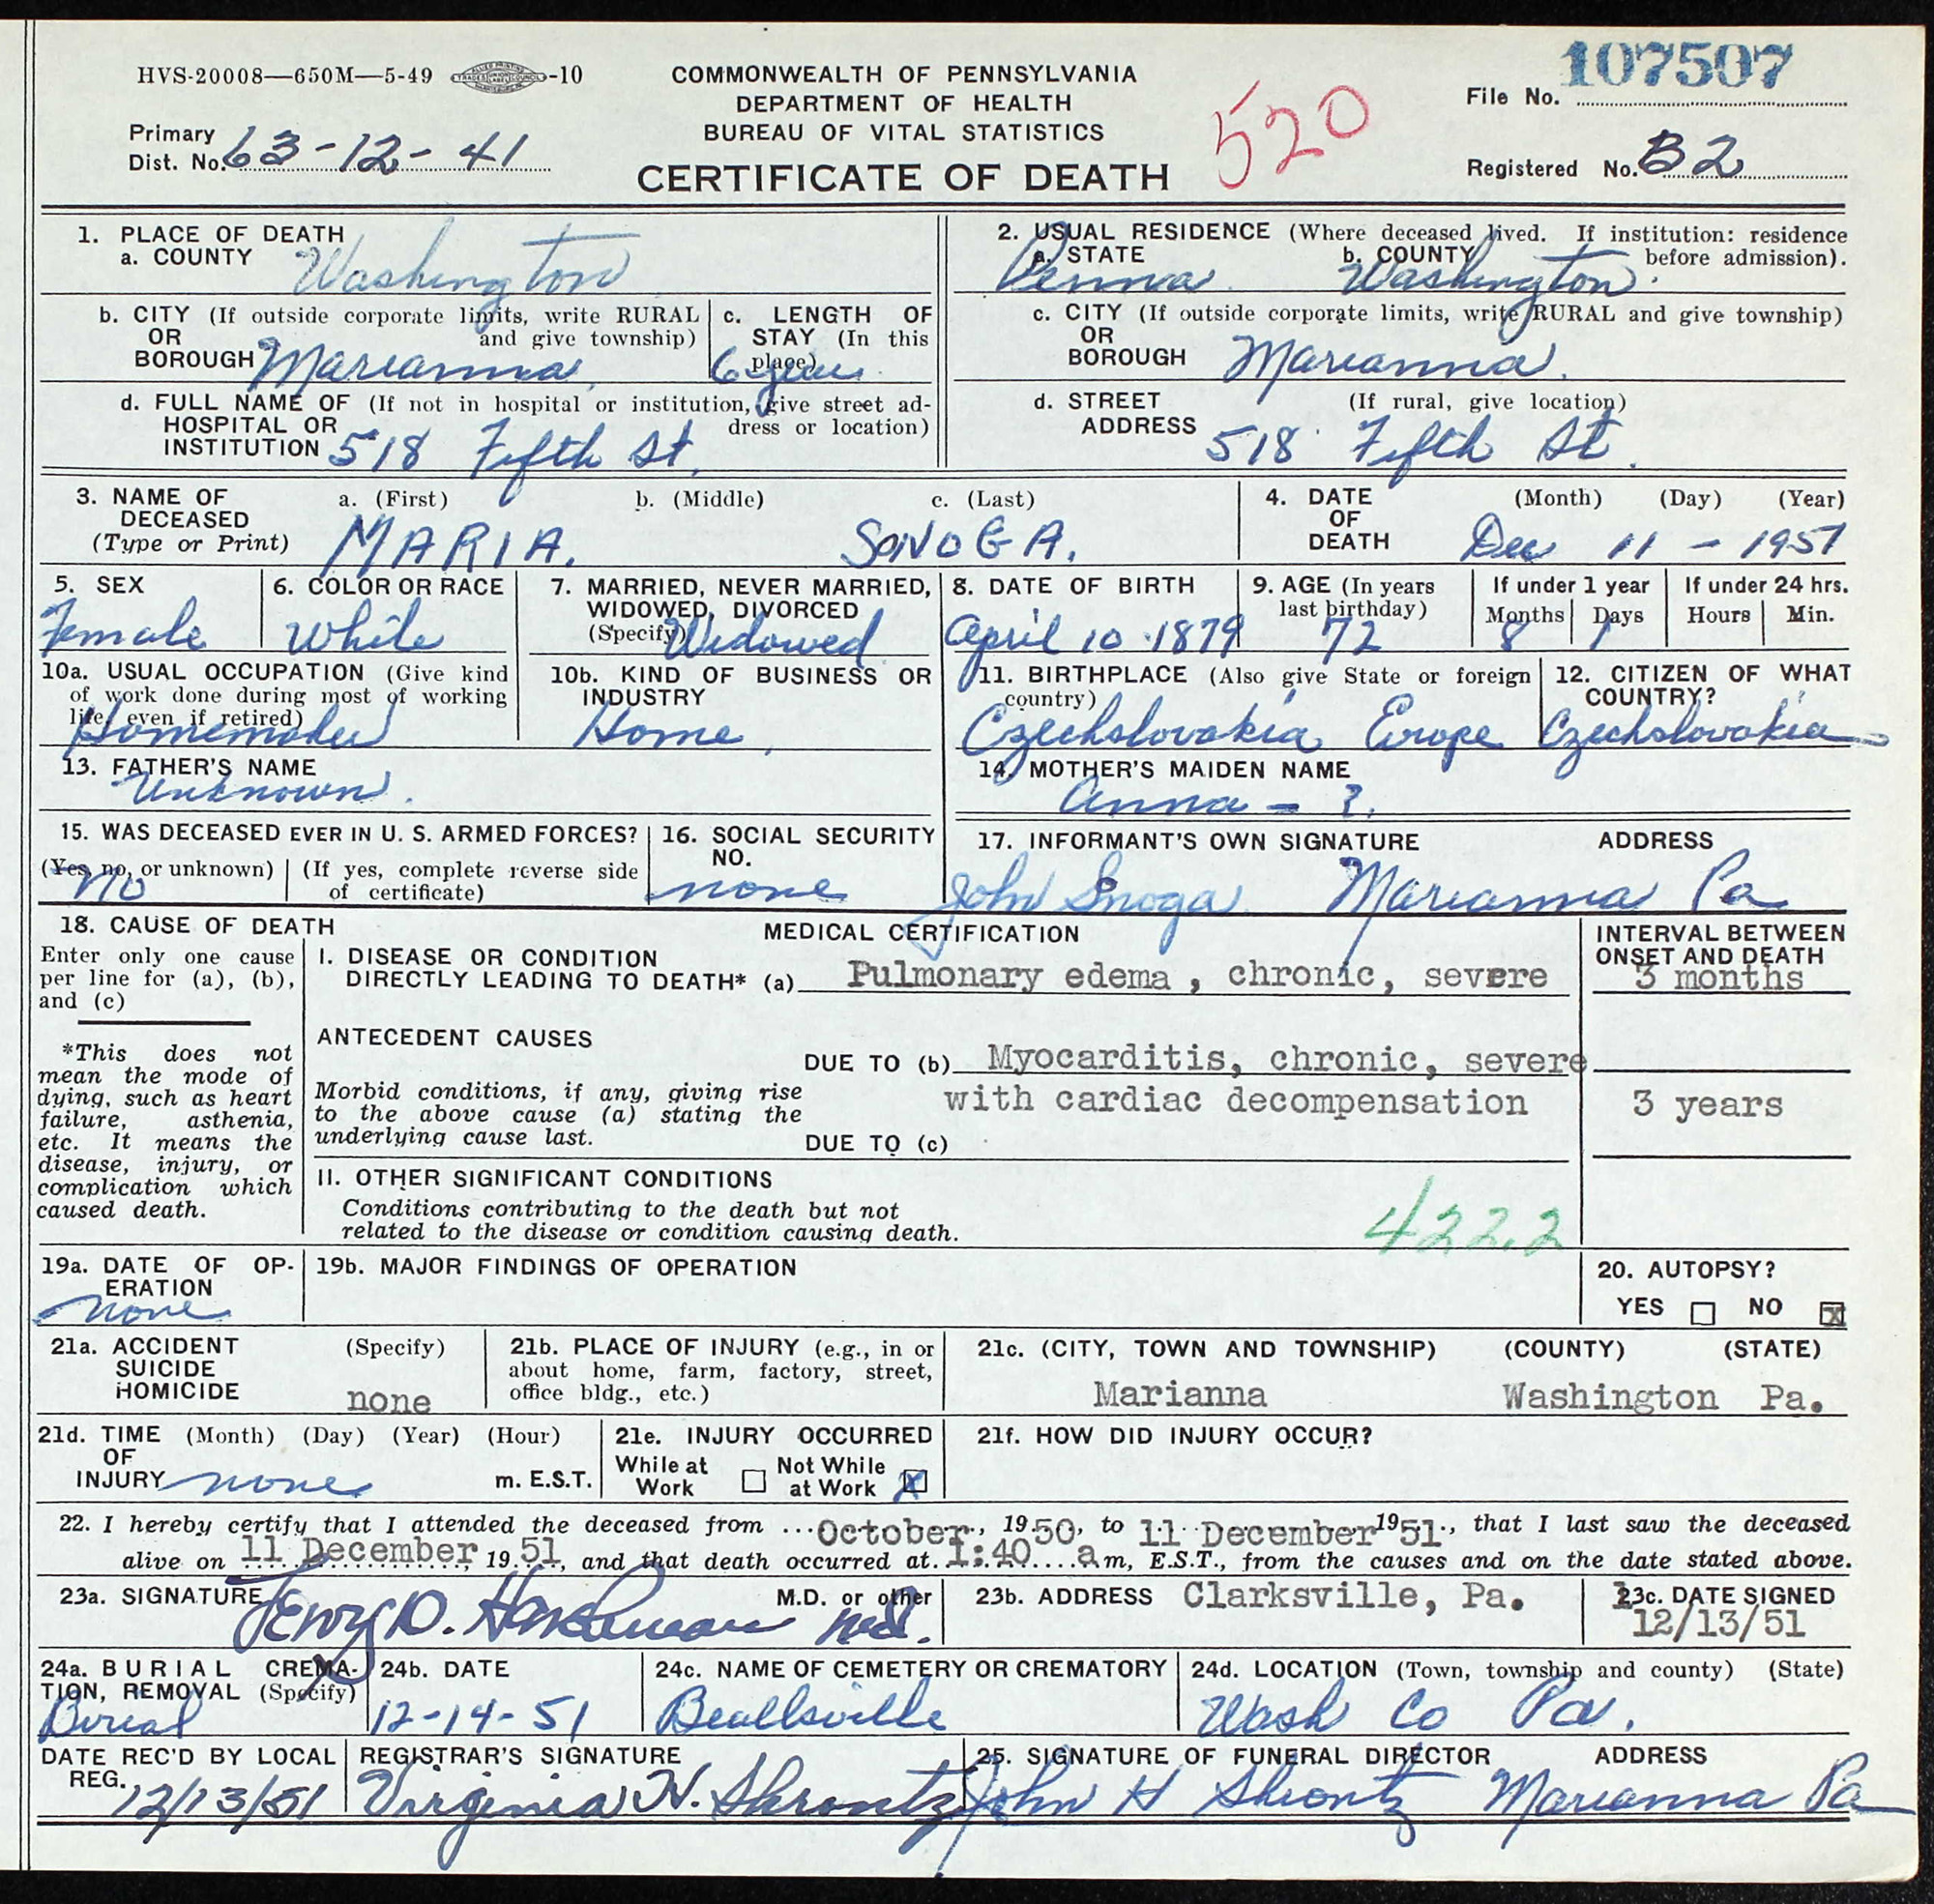 HVS-20008—650M—5-49 -10
COMMONWEALTH OF PENNSYLVANIA
DEPARTMENT OF HEALTH
BUREAU OF VITAL STATISTICS
CERTIFICATE OF DEATH
520
File No. 107507
Primary
Dist. No. 63-12-41
Registered No. B2
1. PLACE OF DEATH
a. COUNTY Washington
2. USUAL RESIDENCE (Where deceased lived. If institution: residence
a. STATE b. COUNTY before admission).
Penna Washington
b. CITY (If outside corporate limits, write RURAL
OR and give township)
BOROUGH Marianna
c. LENGTH OF
STAY (In this
place)
6 years
c. CITY (If outside corporate limits, write RURAL and give township)
OR
BOROUGH Marianna
d. FULL NAME OF (If not in hospital or institution, give street ad-
HOSPITAL OR dress or location)
INSTITUTION 518 Fifth St.
d. STREET (If rural, give location)
ADDRESS 518 Fifth St.
3. NAME OF a. (First) b. (Middle) c. (Last)
DECEASED
(Type or Print) MARIA. SNOGA.
4. DATE (Month) (Day) (Year)
OF
DEATH Dec 11 - 1951
5. SEX
Female
6. COLOR OR RACE
White
7. MARRIED, NEVER MARRIED,
WIDOWED, DIVORCED
(Specify) Widowed
8. DATE OF BIRTH
April 10 1879
9. AGE (In years
last birthday)
72
If under 1 year
Months Days
8 1
If under 24 hrs.
Hours Min.
10a. USUAL OCCUPATION (Give kind
of work done during most of working
life, even if retired)
Homemaker
10b. KIND OF BUSINESS OR
INDUSTRY
Home
11. BIRTHPLACE (Also give State or foreign
country)
Czechslovakia Europe
12. CITIZEN OF WHAT
COUNTRY?
Czechslovakia
13. FATHER'S NAME
Unknown.
14. MOTHER'S MAIDEN NAME
Anna - ?.
15. WAS DECEASED EVER IN U. S. ARMED FORCES?
(Yes, no, or unknown) (If yes, complete reverse side
of certificate)
No
16. SOCIAL SECURITY
NO.
none
17. INFORMANT'S OWN SIGNATURE ADDRESS
John Snoga Marianna Pa
18. CAUSE OF DEATH
Enter only one cause
per line for (a), (b),
and (c)
*This does not
mean the mode of
dying, such as heart
failure, asthenia,
etc. It means the
disease, injury, or
complication which
caused death.
MEDICAL CERTIFICATION
I. DISEASE OR CONDITION
DIRECTLY LEADING TO DEATH* (a) Pulmonary edema , chronic, severe
INTERVAL BETWEEN
ONSET AND DEATH
3 months
ANTECEDENT CAUSES
DUE TO (b) Myocarditis, chronic, severe
Morbid conditions, if any, giving rise
to the above cause (a) stating the
underlying cause last.
with cardiac decompensation 3 years
DUE TO (c)
II. OTHER SIGNIFICANT CONDITIONS
Conditions contributing to the death but not
related to the disease or condition causing death.
422.2
19a. DATE OF OP-
ERATION
none
19b. MAJOR FINDINGS OF OPERATION
20. AUTOPSY?
YES NO X
21a. ACCIDENT (Specify)
SUICIDE
HOMICIDE none
21b. PLACE OF INJURY (e.g., in or
about home, farm, factory, street,
office bldg., etc.)
21c. (CITY, TOWN AND TOWNSHIP) (COUNTY) (STATE)
Marianna Washington Pa.
21d. TIME (Month) (Day) (Year) (Hour)
OF
INJURY none m. E.S.T.
21e. INJURY OCCURRED
While at Not While
Work at Work X
21f. HOW DID INJURY OCCUR?
22. I hereby certify that I attended the deceased from October, 1950, to 11 December 1951, that I last saw the deceased
alive on 11 December, 1951, and that death occurred at 1:40 a m, E.S.T., from the causes and on the date stated above.
23a. SIGNATURE M.D. or other
M.D.
23b. ADDRESS Clarksville, Pa.
23c. DATE SIGNED
12/13/51
24a. BURIAL CREMA-
TION, REMOVAL (Specify)
Burial
24b. DATE
12-14-51
24c. NAME OF CEMETERY OR CREMATORY
Beallsville
24d. LOCATION (Town, township and county) (State)
Wash Co Pa.
DATE REC'D BY LOCAL
REG. 12/13/51
REGISTRAR'S SIGNATURE
Virginia H. Shrontz
25. SIGNATURE OF FUNERAL DIRECTOR ADDRESS
John H Shrontz Marianna Pa